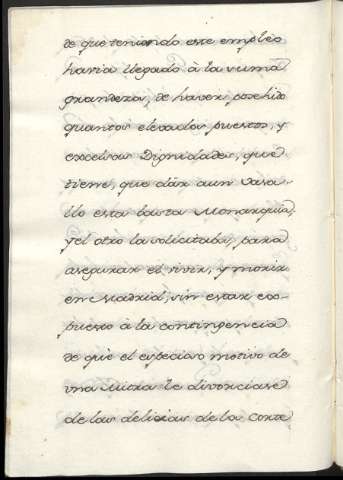 de que teniendo este empleo
havia llegado à la suma
grandeza, de haver posehido
quantos elevados puestos, y
excelsas Dignidades, que
tiene, que dàr aun Vasa-
llo esta basta Monarquia,
y el otro la solicitaba, para
asegurar el vivir, y morir
en Madrid, sin estar ex-
puesto à la contingencia
de que el especioso motivo de
una Mitra le divorciase
de las delicias de la Corte